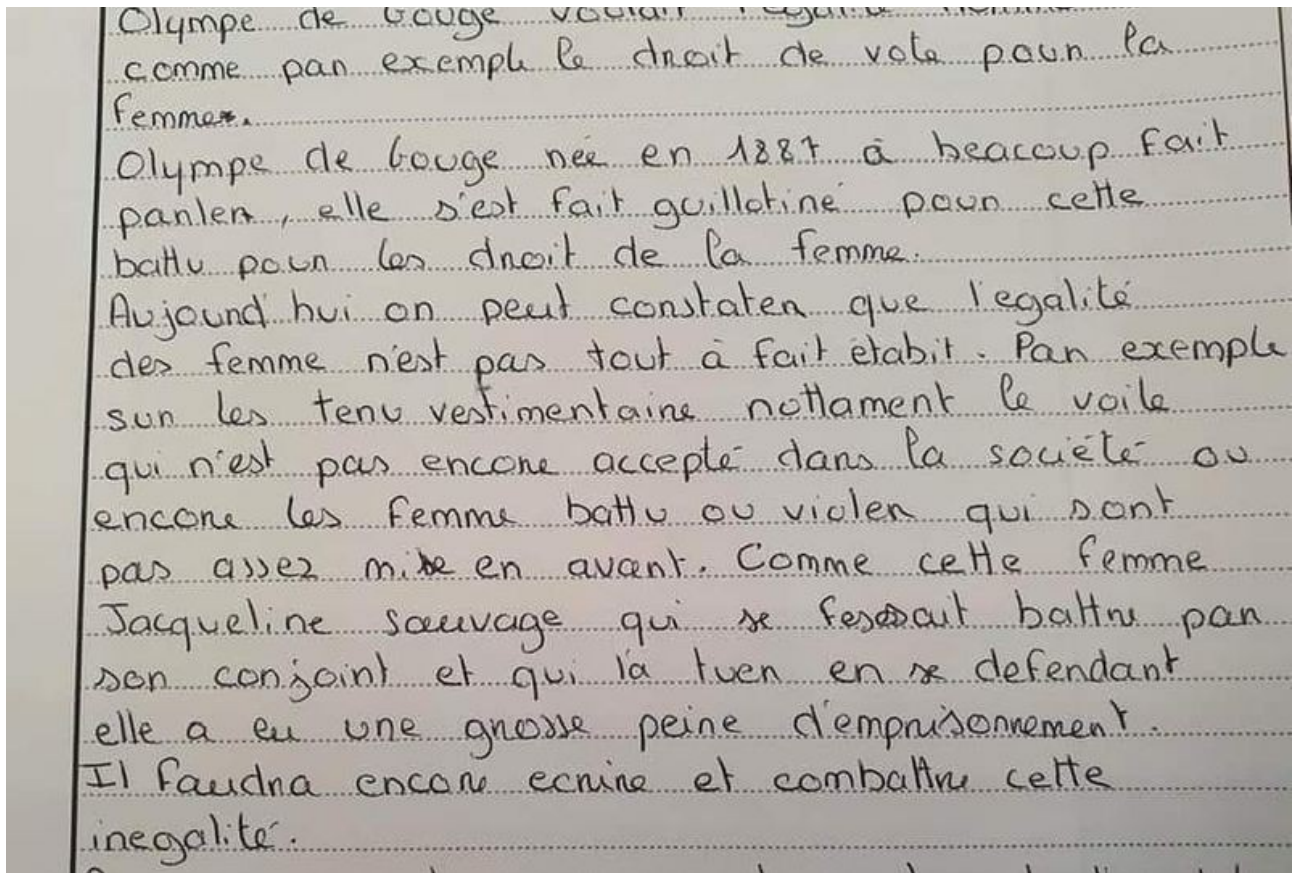 Olympe de Gouge voulait l'égalité
comme par exemple le droit de vote pour la
femme.
Olympe de Gouge née en 1887 à beacoup fait
parler, elle s'est fait guillotiné pour cette
battu pour les droit de la femme.
Aujourd'hui on peut constater que l'egalité
des femme n'est pas tout à fait établit. Par exemple
sur les tenu vestimentaire nottament le voile
qui n'est pas encore accepté dans la société ou
encore les femme battu ou violer qui sont
pas assez mise en avant. Comme cette femme
Jacqueline sauvage qui se fesait battre par
son conjoint et qui l'a tuer en se defendant
elle a eu une grosse peine d'emprisonnement.
Il faudra encore ecrire et combattre cette
inegalité.